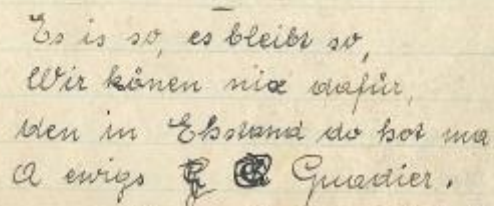 Es is so, es bleibt so,
Wir kånen nix dafür,
den in Ehstand do hot ma
A ewigs Gwadier.